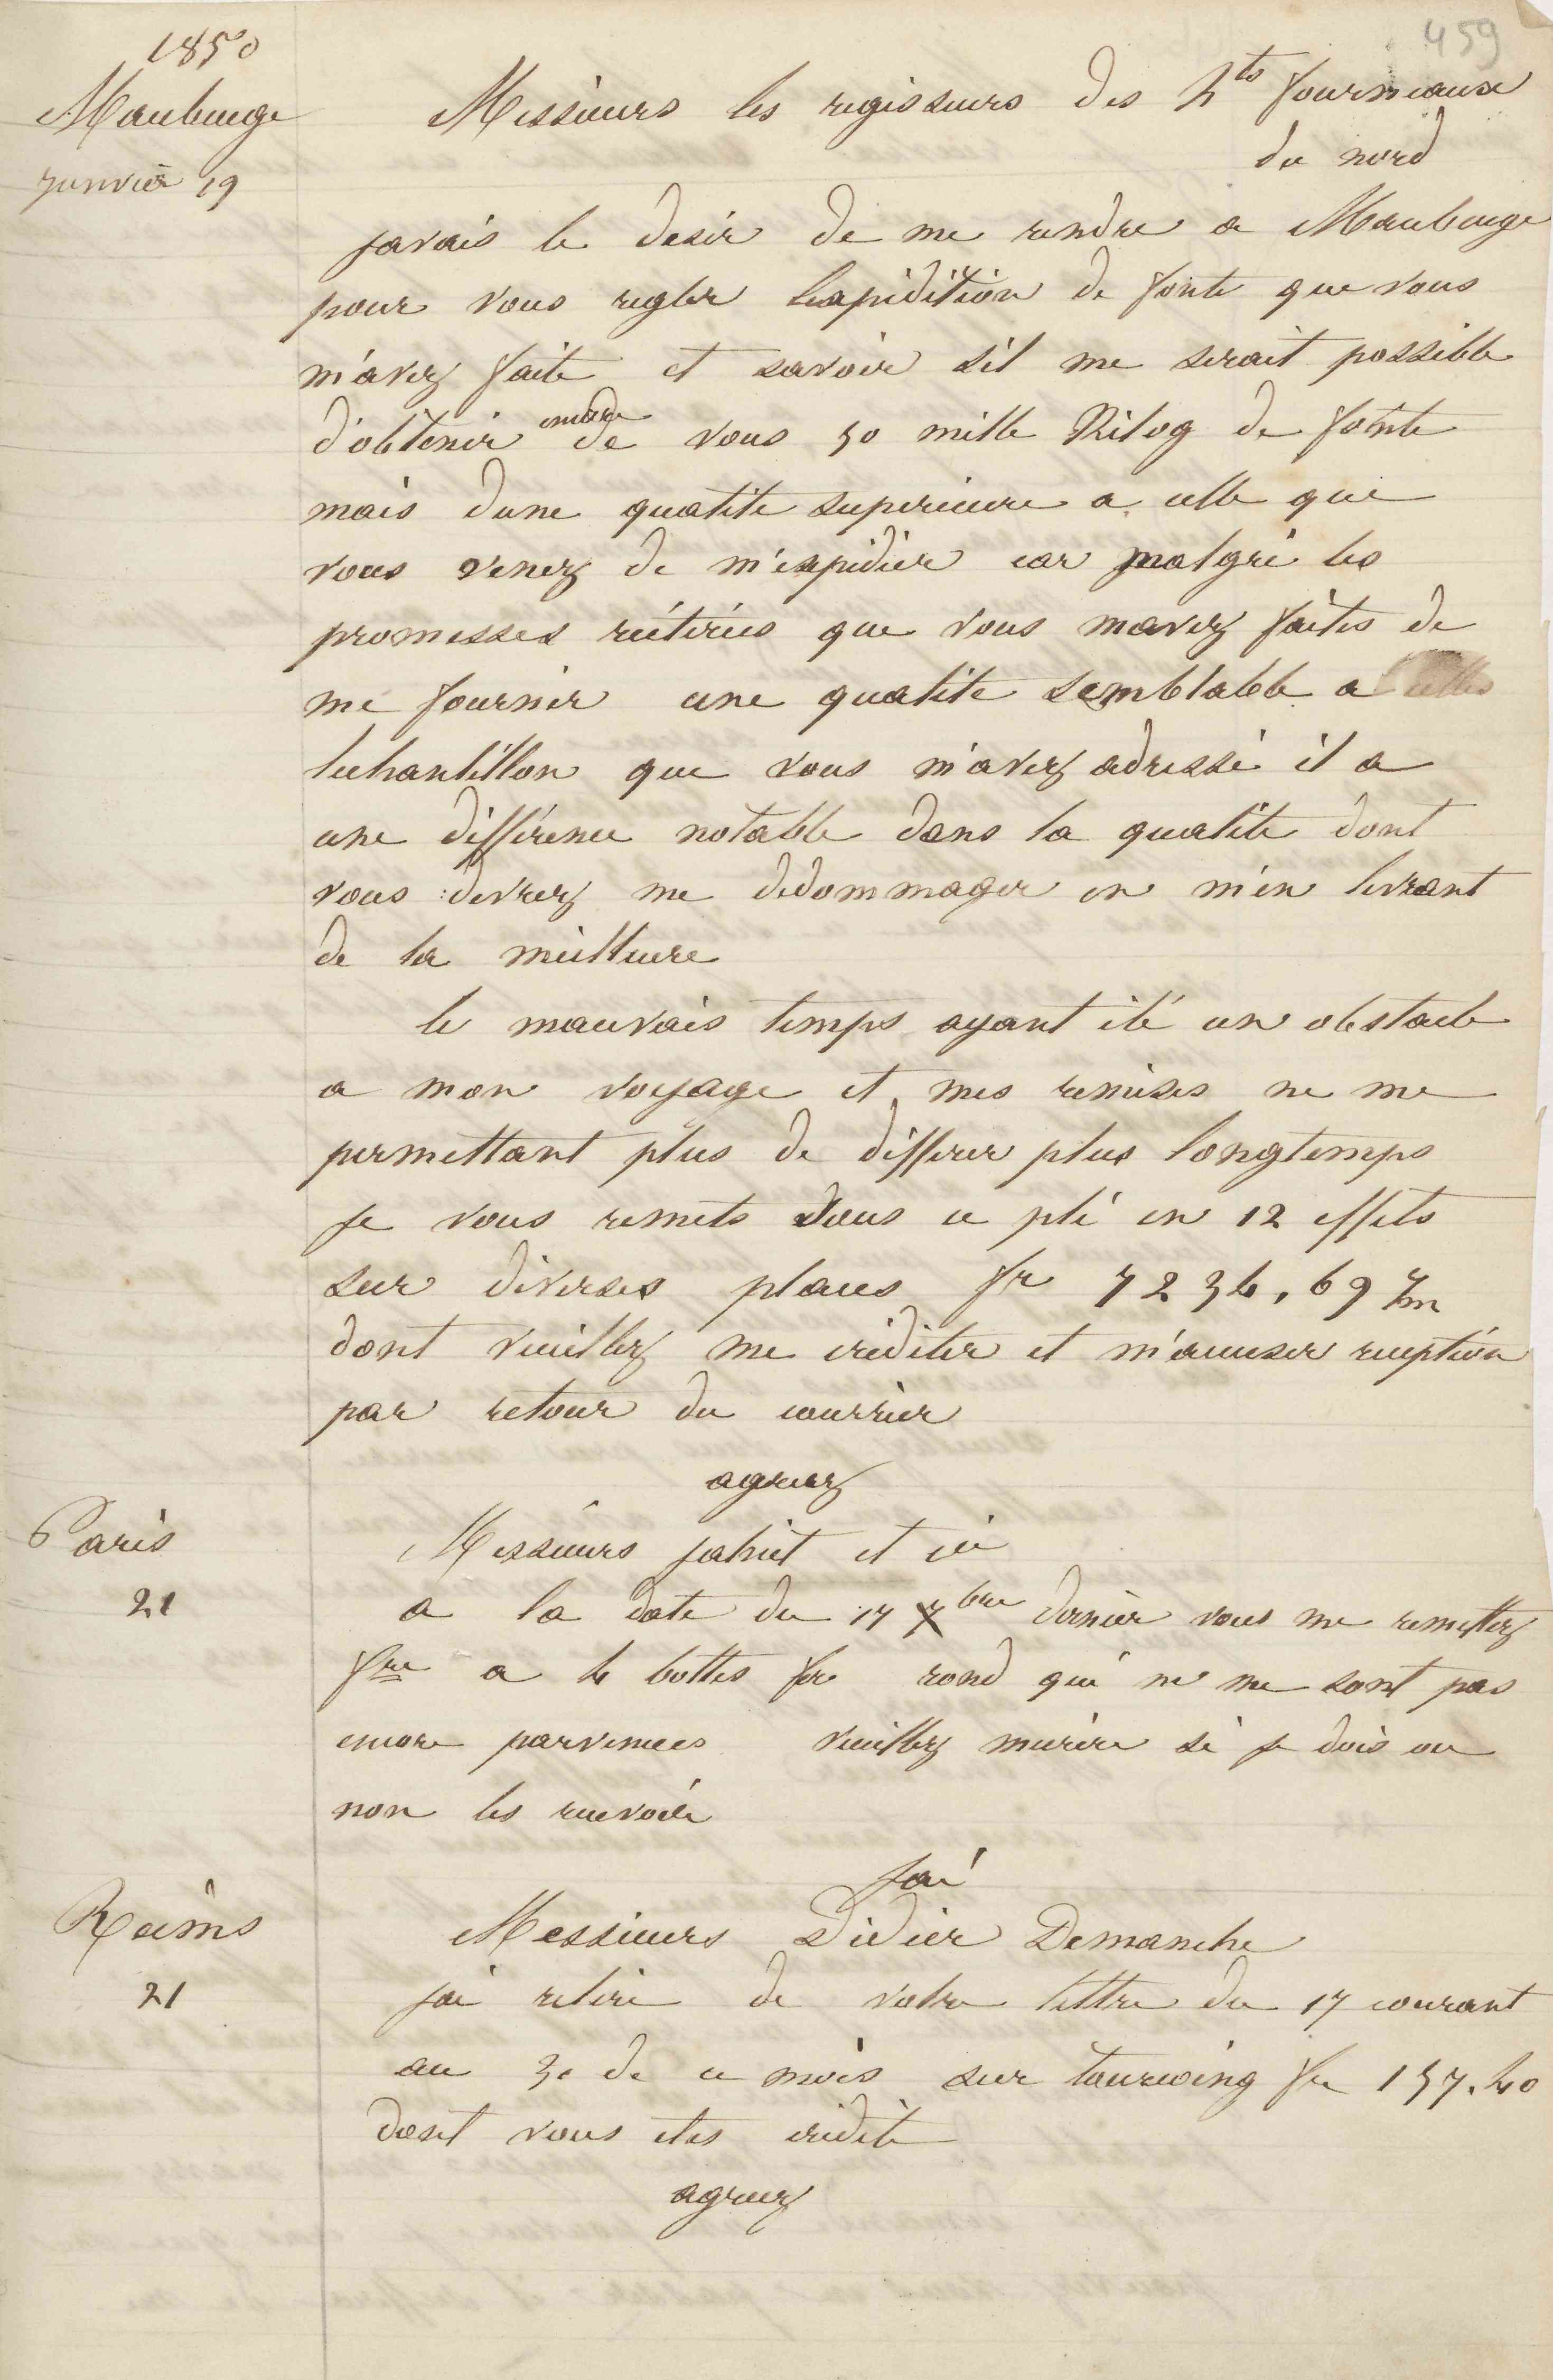 459
1850
Maubeuge
janvier 19
Messieurs les regisseurs des hts fourneaux
du nord
javais le desir de me rendre a Maubeuge
pour vous regler lexpidition de fonte que vous
m'avez faite et savoir s'il me serait possible
d'obtenir encore de vous 50 mille Kilog de fonte
mais dune qualite superieure a celle que
vous venez de m'expidier car malgré les
promesses réitérées que vous mavez faites de
me fournir une qualite semblable a celle
lechantillon que vous m'avez adressé il a
une différence notable dans la qualite dont
vous devrez me dedommager en m'en livrant
de la meilleure
le mauvais temps ayant été un obstacle
a mon voyage et mes remises ne me
permettant plus de differer plus longtemps
je vous remets sous ce pli en 12 effets
sur diverses places fr 7234,69
dont veuillez me créditer et m'accuser reception
par retour du courrier
agreez
Paris
21
Messieurs jahiet et cie
a la date du 17 7bre dernier vous me remettez
fre a 4 bottes fer rond qui ne me sont pas
encore parvenues veuillez mecrire si je dois ou
non les recevoir
jai
Reims
21
Messieurs Didier Demanche
jai retiré de votre lettre du 17 courant
au 30 de ce mois sur tourcoing fr 157.40
dont vous etes crédité
agreez